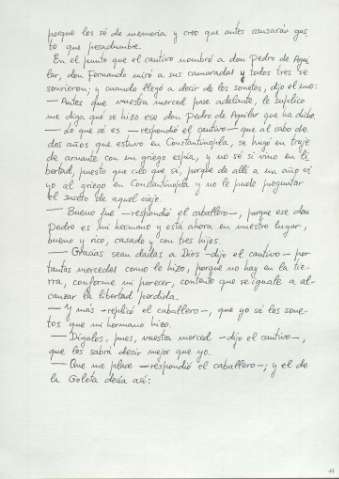 porque los sé de memoria y creo que antes causarán gus
to que pesadumbre.
En el punto que el cautivo nombró a don Pedro de Agui
lar, don Fernando miró a sus camaradas y todos tres se
sonrieron; y cuando llegó a decir de los sonetos, dijo el uno:
— Antes que vuestra merced pase adelante, le suplico
me diga que se hizo ese don Pedro de Aguilar que ha dicho.
— Lo que sé es — respondió el cautivo — que al cabo de
dos años que estuvo en Constantinopla, se huyó en traje
de arnaute con un griego espía, y no sé si vino en li
bertad, puesto que creo que sí, porque de allí a un año vi
yo al griego en Constantinopla y no le pude preguntar
el suceso de aquel viaje.
— Bueno fue — respondió el caballero —, porque ese don
Pedro es mi hermano y está ahora en nuestro lugar,
bueno y rico, casado y con tres hijos.
— Gracias sean dadas a Dios - dijo el cautivo - por
tantas mercedes como le hizo, porque no hay en la tie-
rra, conforme mi parecer, contento que se iguale a al-
canzar la libertad perdida.
— Y más - replicó el caballero -, que yo sé los sone-
tos que mi hermano hizo.
— Dígalos, pues, vuestra merced - dijo el cautivo -,
que los sabrá decir mejor que yo.
— Que me place — respondió el caballero -; y el de
la Goleta decía así: